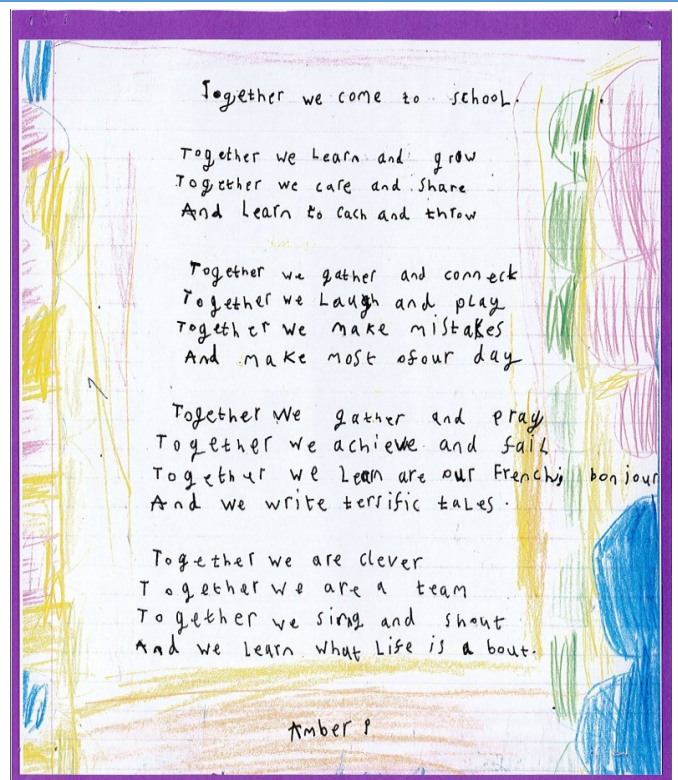 Together we come to school.
Together we Learn and grow
Together we care and share
And Learn to cach and throw
Together we gather and conneck
Together we Laugh and play
Together we make mistakes
And make most ofour day
Together we gather and pray
Together we achieve and fail
Together we Learn are our French, bonjour
And we write terrific taLes.
Together we are clever
Together we are a team
Together we sing and shout
And we Learn what Life is a bout.
Amber P